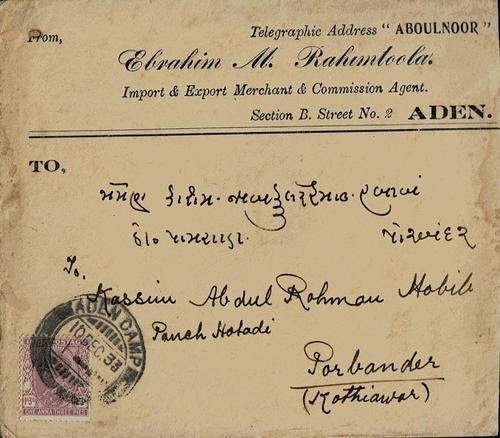 From,
Telegraphic Address "ABOULNOOR"
Ebrahim M. Rahimtoola.
Import & Export Merchant & Commission Agent.
Section B. Street No. 2 ADEN.
TO,
પોરબંદર
To.
Kassim Abdul Rohman Habib
Panch Hatadi
Porbander
(Kothiawar)
ADEN CAMP
10 DEC. 33
POSTAGE
ONE ANNA THREE PIES